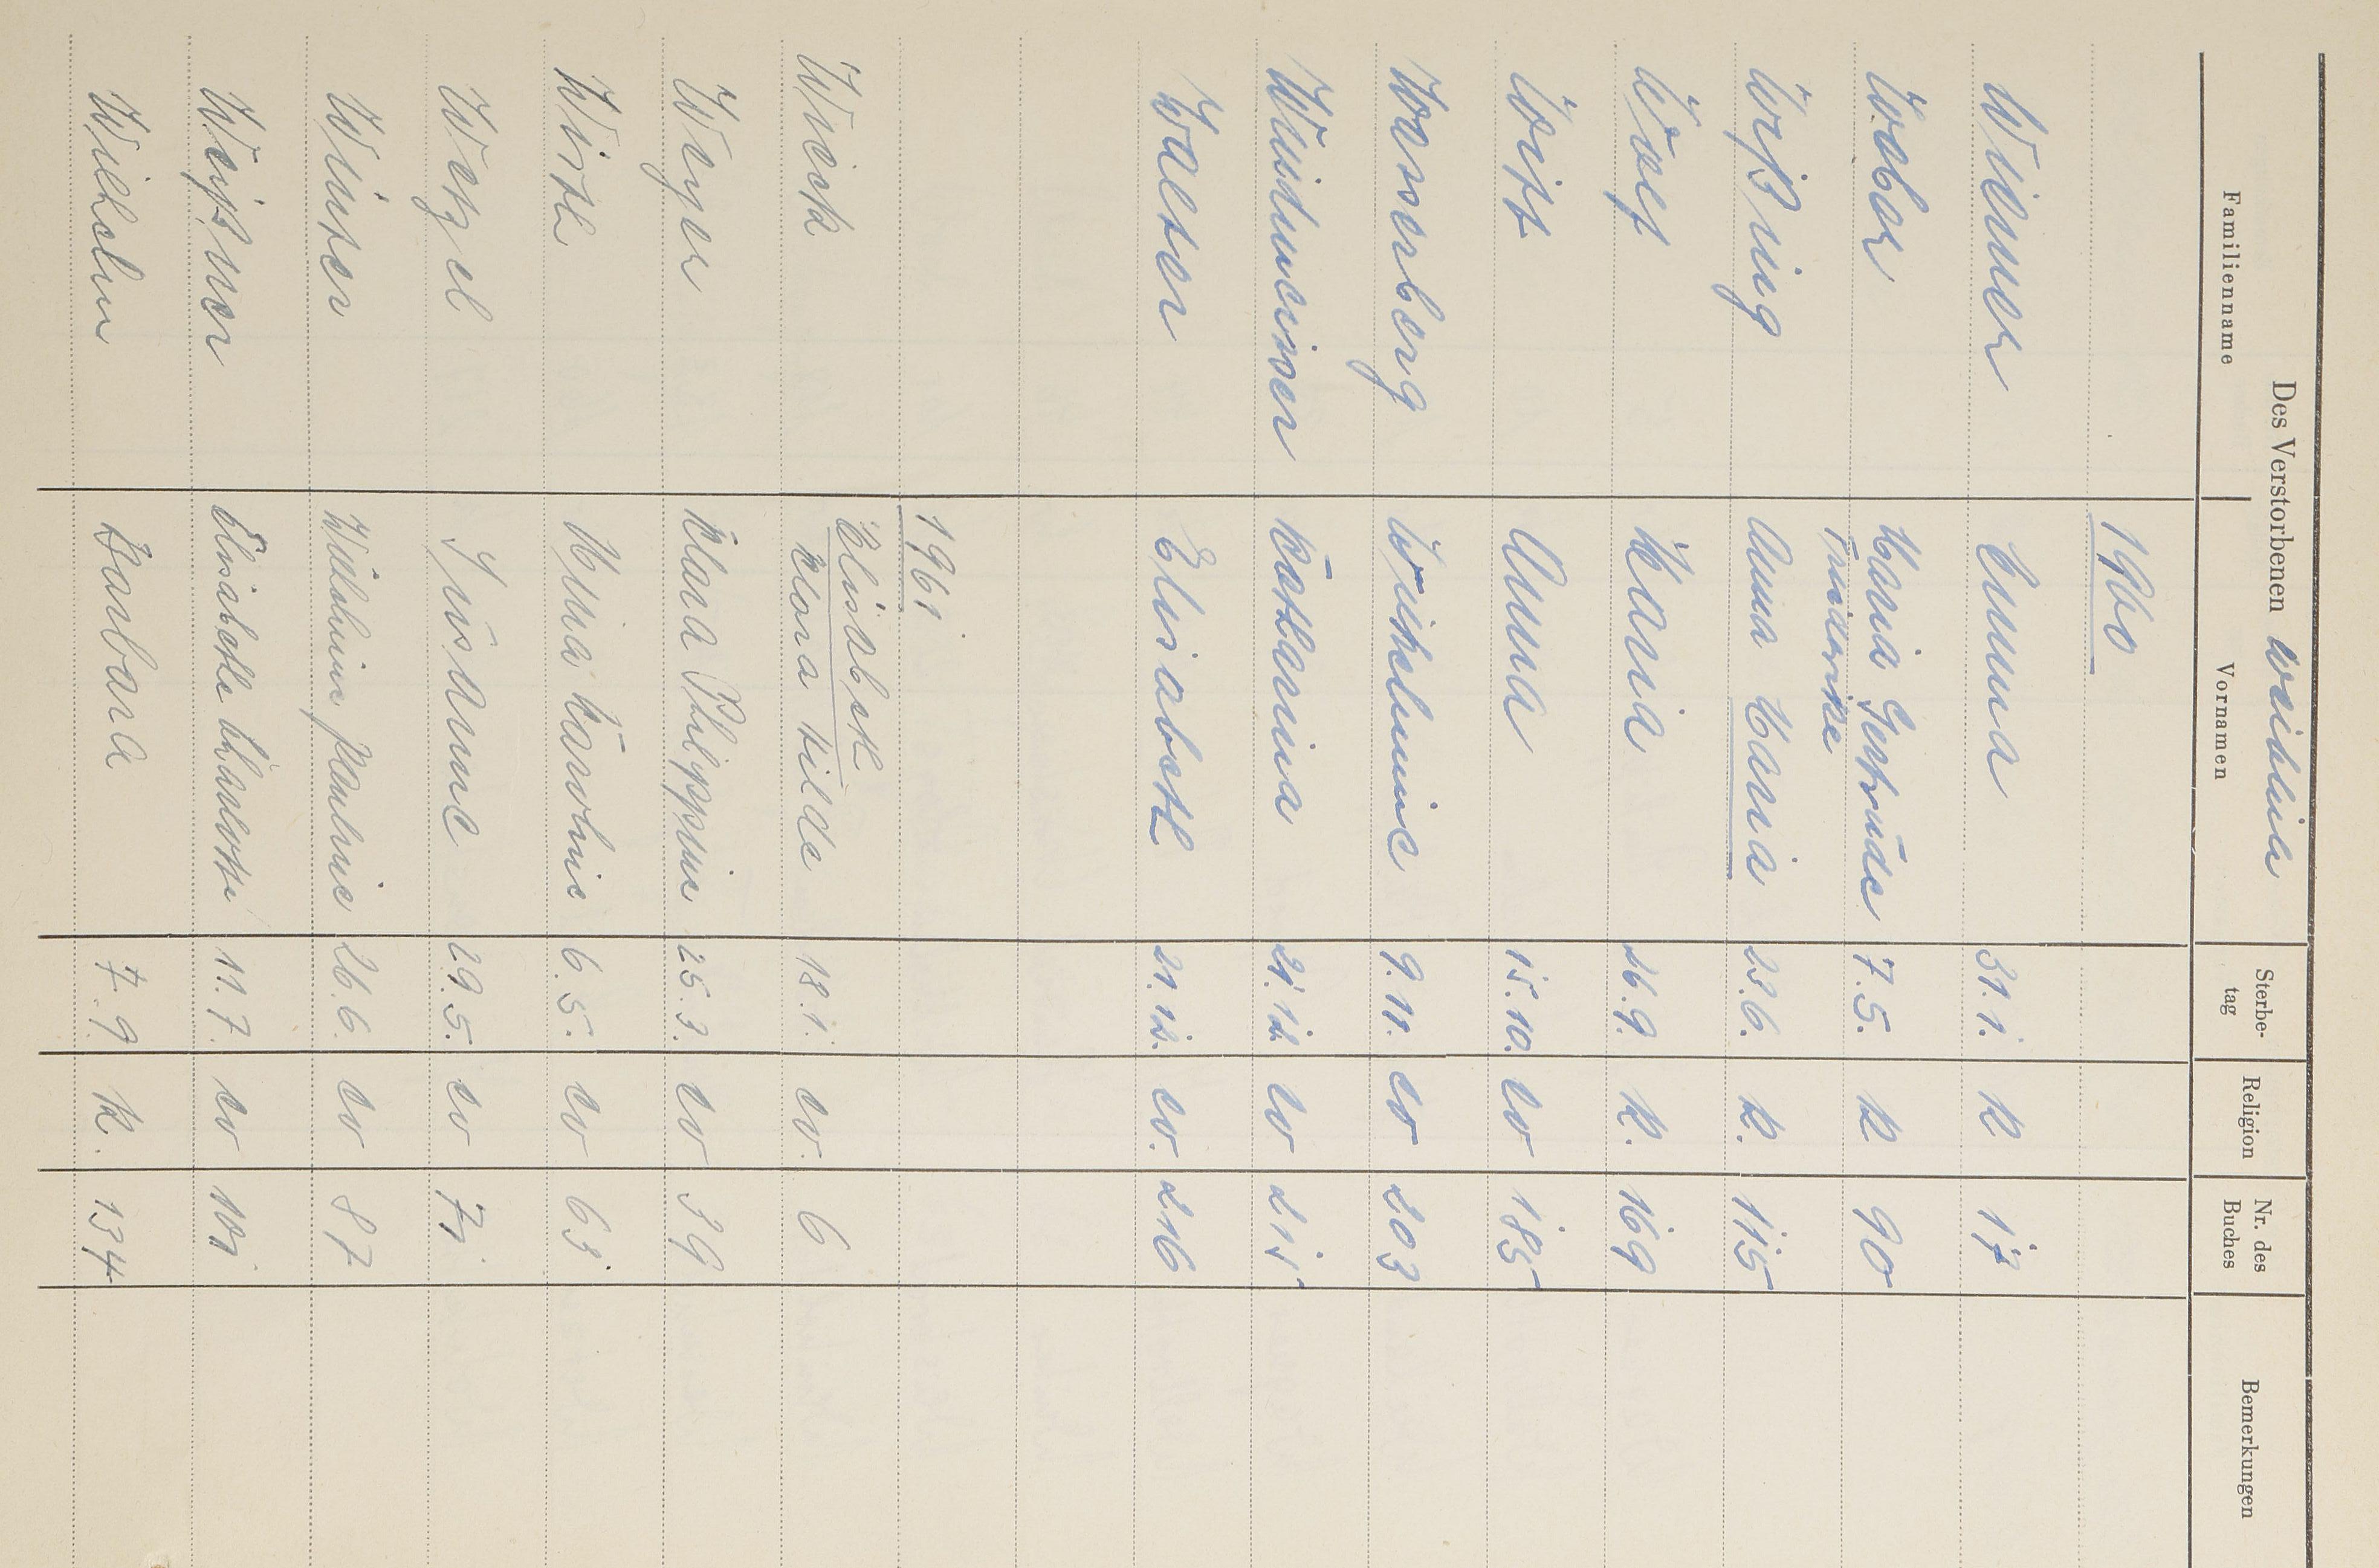 Des Verstorbenen weiblich
Familienname Vornamen Sterbe-tag Religion Nr. des Buches Bemerkungen
1960
Wimmer Emma 31.1. k 17
Weber Maria Gertrude Friederike 7.5. k 90
Weßing Anna Maria 23.6. k. 115
Wolf Maria 26.9. k. 169
Anna 15.10. ev 185
Wasserberg Wilhelmine 9.11. ev 203
Katharina 21.12. ev 215
Walter Elisabeth 21.12. ev. 216
1961
Wick Elisabeth Klara Hilde 18.1. ev. 6
Weyer Klara Philippine 25.3. ev 39
Wirth Mina Karoline 6.5. ev 63
Wetzel Susanne 29.5. ev 71
Winter Wilhelmine Pauline 26.6. ev 87
Weißner Elisabethe Charlotte 11.7. ev 101
Wilhelm Barbara 7.9. k. 134